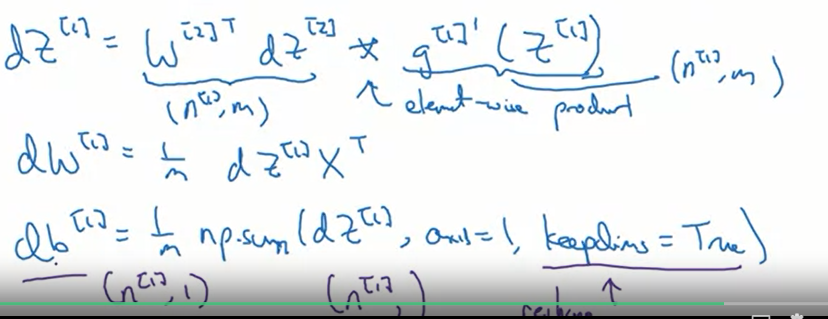 dZ^[1] = W^[2]T dZ^[2] * g^[1]' (Z^[1])
(n^[1], m) element-wise product (n^[1], m)
dW^[1] = 1/m dZ^[1] X^T
db^[1] = 1/m np.sum(dZ^[1], axis=1, keepdims=True)
(n^[1], 1) (n^[1],)